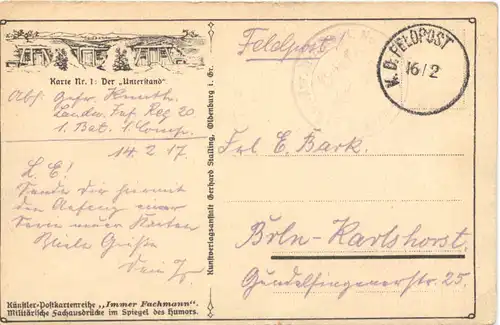 Karte Nr. 1: Der „Unterstand“
Abs: Gefr. Knuth.
Landw. Inf. Reg 20
1. Bat. 1. Comp.
14. 2. 17.
L. E!
Sende Dir hiermit
den Anfang einer
Serie neuer Karten
Viele Grüße
Dein
Künstler-Postkartenreihe „Immer Fachmann“.
Militärische Fachausdrücke im Spiegel des Humors.
Kunstverlagsanstalt Gerhard Stalling, Oldenburg i. Gr.
Feldpost!
K. D. FELDPOST
16/2
Frl. E. Bark.
Brln-Karlshorst.
Gundelfingenerstr. 25.